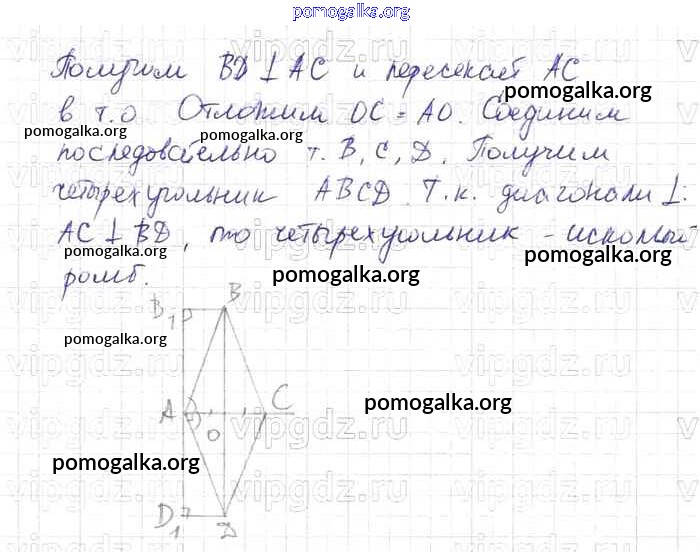 pomogalka.org
Получим BD ⊥ AC и пересекает AC
pomogalka.org
в т.О. Отложим OC = AO. Соединим
pomogalka.org
pomogalka.org
последовательно т. B, C, D. Получим
четырехугольник ABCD. Т.к. диагонали ⊥:
AC ⊥ BD, то четырехугольник - искомый
pomogalka.org
pomogalka.org
pomogalka.org
ромб.
B
B1
pomogalka.org
A
O
C
pomogalka.org
pomogalka.org
D1
D
vipgdz.ru